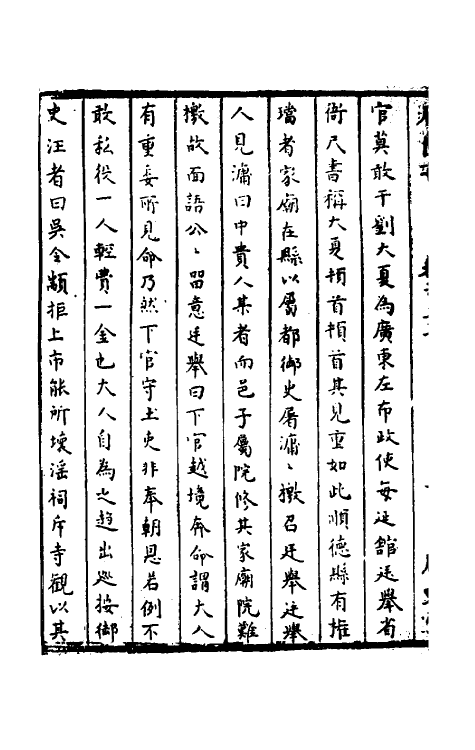 官莫敢干劉大夏為廣東左布政使每廷舘廷舉省
衙尺書稱大夏頓首頓首其見重如此順德縣有權
璫者家廟在縣以屬都御史屠滽〻檄召廷舉廷舉
人見滽曰中貴人某者而邑子屬院修其家廟院難
檄故面語公〻㗊意廷舉曰下官越境奔命謂大人
有重委所見命乃然下官守土吏非奉朝恩若例不
敢私役一人輕費一金也大人自為之趨出廵按御
史汪者曰吳令顓拒上市能所壞滛祠斥寺觀以其